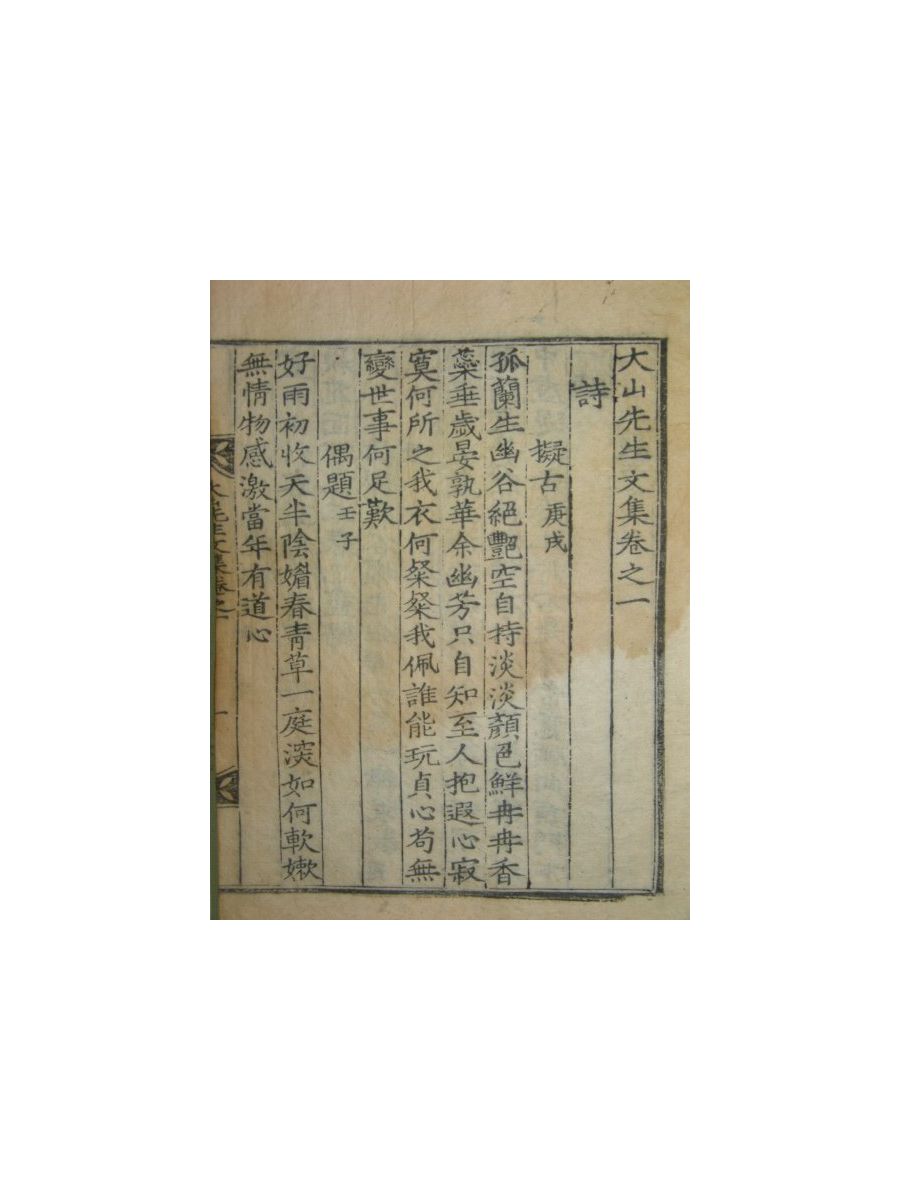 大山先生文集卷之一
詩
擬古 庚戌
孤蘭生幽谷絕艷空自持淡淡顏色鮮冉冉香
蘂垂歲晏孰華余幽芳只自知至人抱遐心寂
寞何所之我衣何粲粲我佩誰能玩貞心苟無
變世事何足歎
偶題 壬子
好雨初收天半陰媚春靑草一庭深如何軟嫩
無情物感激當年有道心
大山先生文集卷之一
一